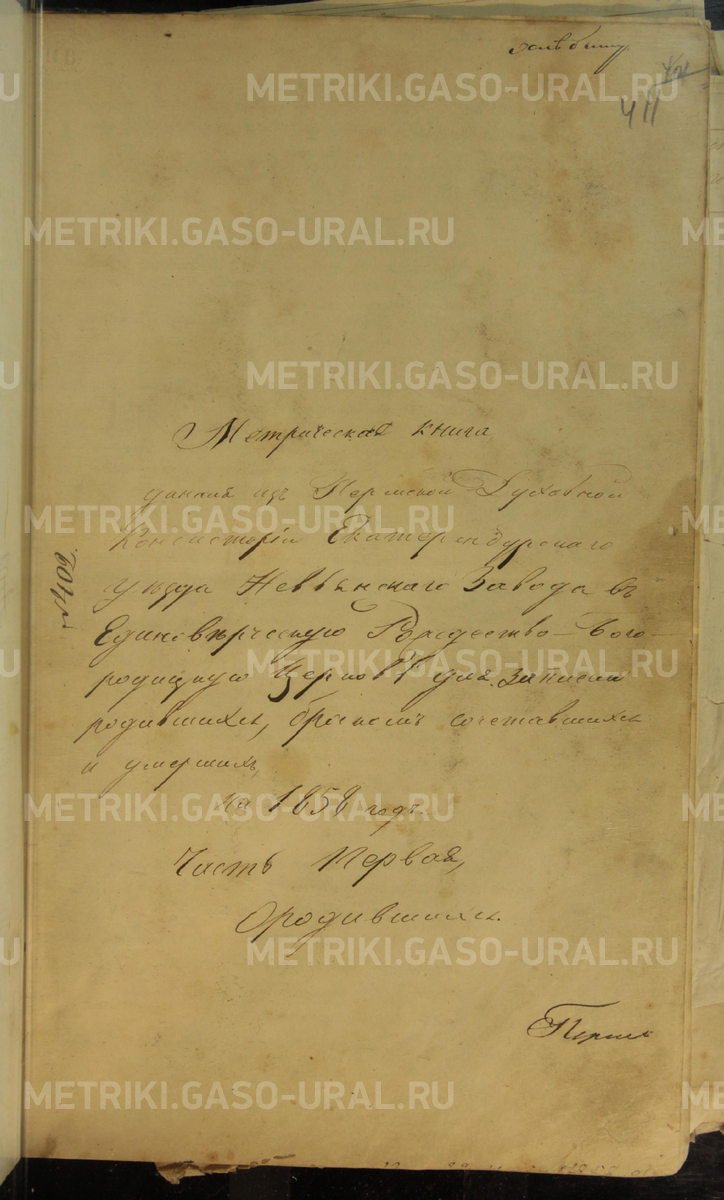 411
Метрическая книга
данная изъ Пермской Духовной
Консисторіи Екатеринбургскаго
уѣзда Невьянскаго Завода въ
Единовѣрческую Рождество-Бого-
родицкую Церковь для записки
родившихся, бракомъ сочетавшихся
и умершихъ,
на 1858 годъ.
Часть Первая,
О родившихся.
METRIKI.GASO-URAL.RU
METRIKI.GASO-URAL.RU
METRIKI.GASO-URAL.RU
METRIKI.GASO-URAL.RU
METRIKI.GASO-URAL.RU
METRIKI.GASO-URAL.RU
METRIKI.GASO-URAL.RU
METRIKI.GASO-URAL.RU